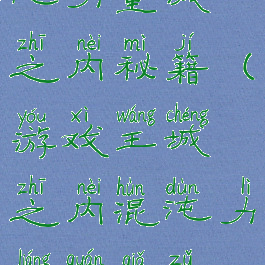 zhī nèi mì jí
之内秘籍（
yóu xì wáng chéng
游戏王城
zhī nèi hùn dùn lì
之内混沌力